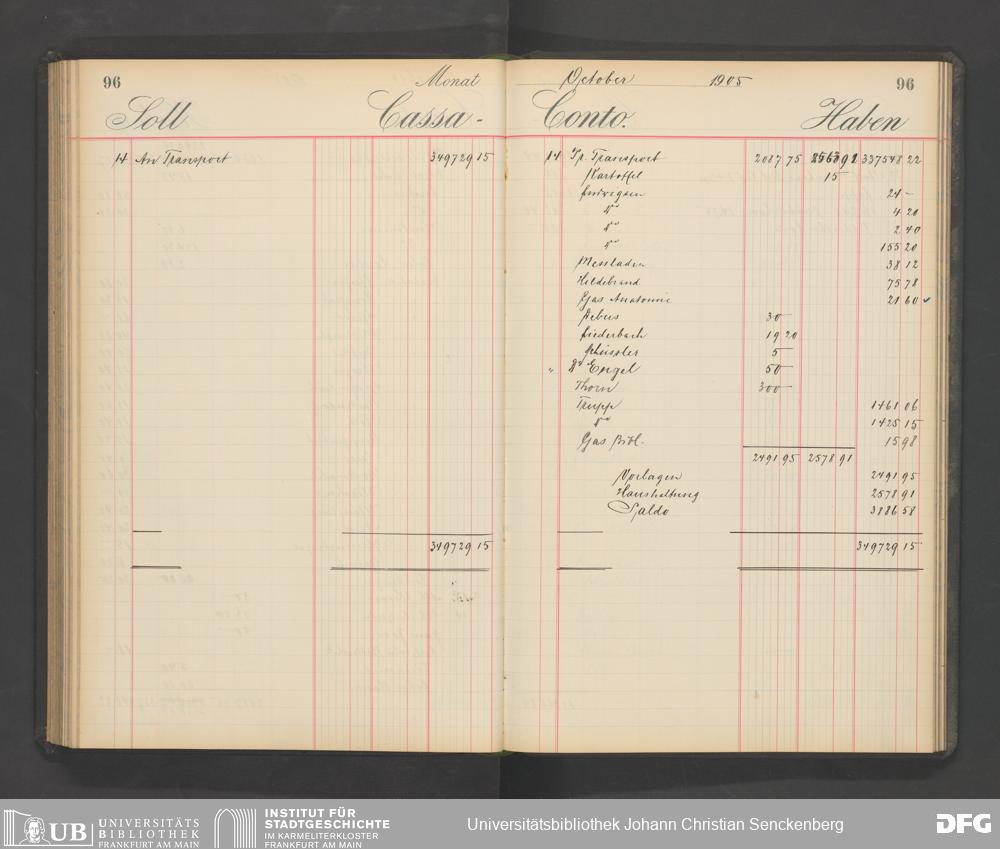 96
Monat
Soll
Cassa-
14 An Transport 349729 15
349729 15
October 1905
96
Conto.
Haben
14 Pr. Transport 2087 75 2563 91 337548 22
Kartoffel 15
Ludwigsen 24 –
do 4 20
do 2 40
do 155 20
Messladen 38 12
Hildebrand 75 78
Gas Anatomie 21 60
Debus 30
Liederbach 19 20
Schüssler 5
" Dr Engel 50
Thorn 300
Trupp 1461 06
do 1425 15
Gas Bibl. 15 98
2491 95 2578 91
Vorlagen 2491 95
Haushaltung 2578 91
Saldo 3886 58
349729 15
UB UNIVERSITÄTS
BIBLIOTHEK
FRANKFURT AM MAIN
INSTITUT FÜR
STADTGESCHICHTE
IM KARMELITERKLOSTER
FRANKFURT AM MAIN
Universitätsbibliothek Johann Christian Senckenberg
DFG